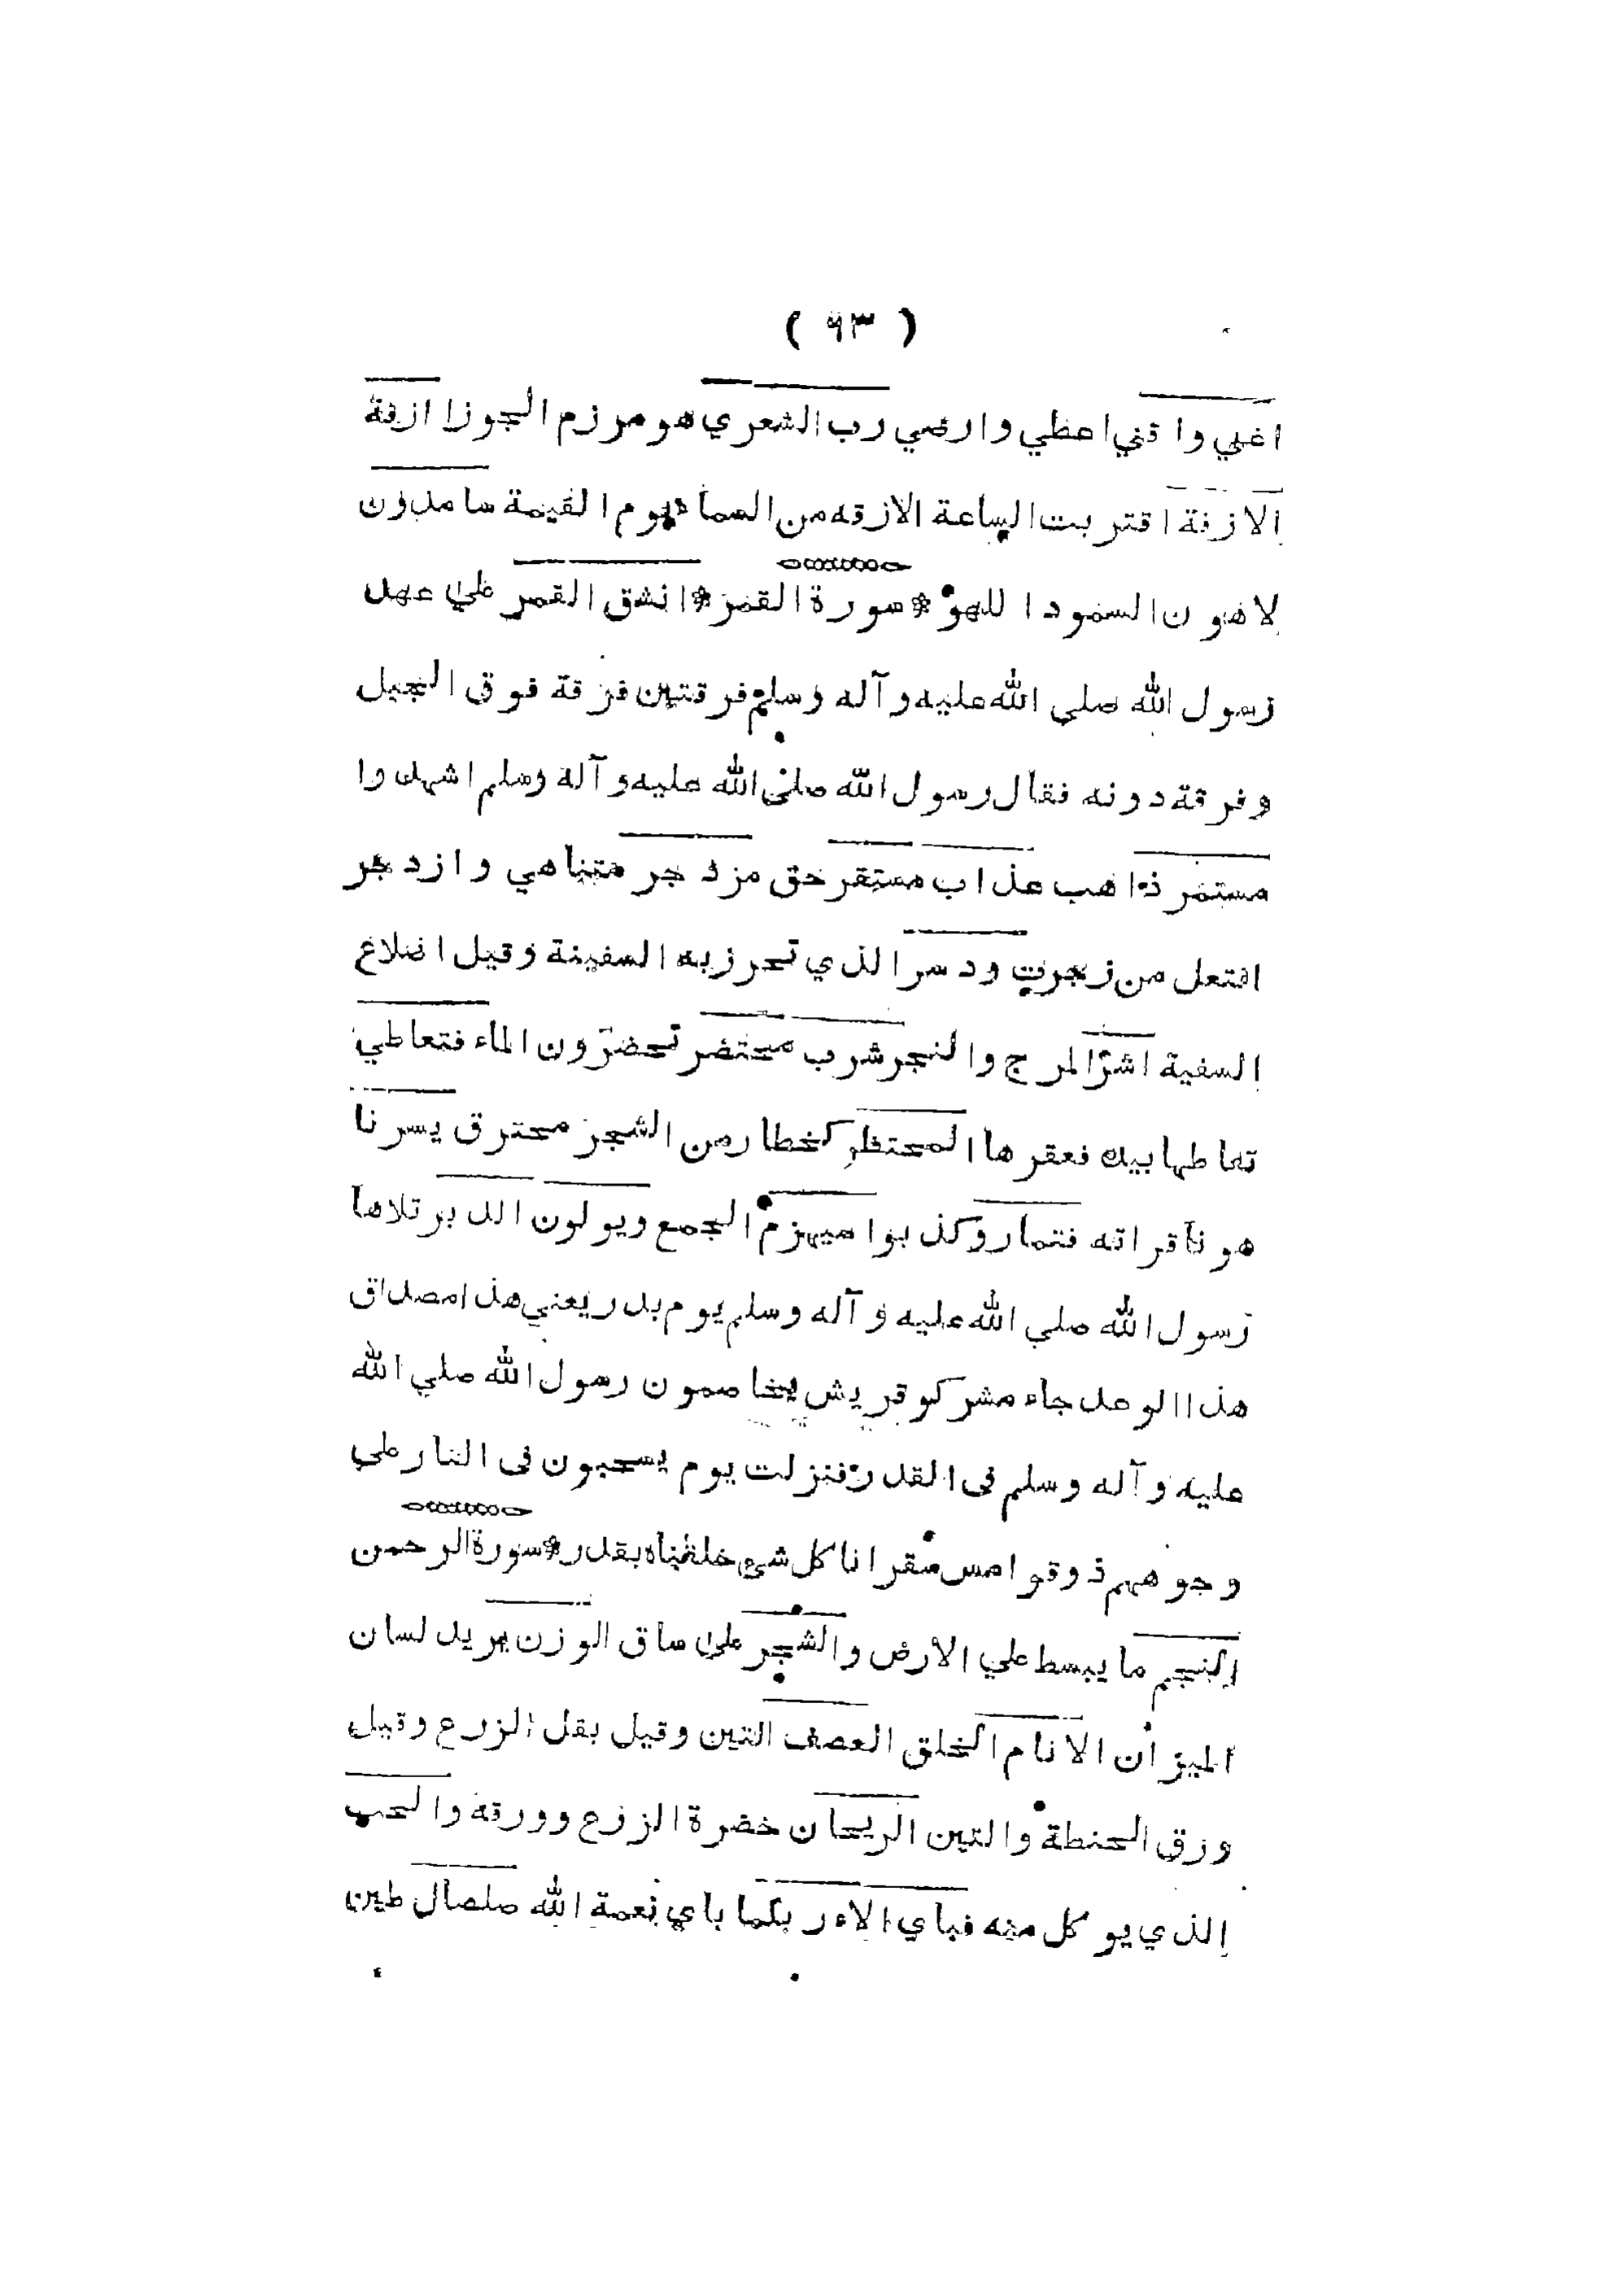 ( ٩٣ )
اغني واقني اعطي وارضي رب الشعري هو مرزم الجوزا ازفة
الازفة اقتربت الساعة الازفه من السماء يوم القيمة سامدون
لاهون السمود اللهو * سورة القمر * انشق القمر علي عهد
رسول الله صلي الله عليه وآله وسلم فرقتين فرقة فوق الجبل
وفرقة دونه فقال رسول الله صلي الله عليه وآله وسلم اشهدوا
مستمر ذاهب عذاب مستقر حق مزدجر متناهي وازدجر
افتعل من زجرت ودسر الذي تحرز به السفينة وقيل اضلاع
السفية اشر المرج والنجر شرب محتضر تحضرون الماء فتعاطي
تعاطها بيده فعقرها المحتظر كخطار من الشجر محترق يسرنا
هونا قراته فتماروا كذبوا سيهزم الجمع ويولون الدبر تلاها
رسول الله صلي الله عليه وآله وسلم يوم بدر يعني هذا مصداق
هذا الوعد جاء مشركو قريش يخاصمون رسول الله صلي الله
عليه وآله وسلم فى القدر فنزلت يوم يسحبون فى النار علي
وجوههم ذوقوا مس سقر انا كل شئ خلقناه بقدر * سورة الرحمن
النجم ما يبسط علي الارض والشجر علي ساق الوزن يريد لسان
الميزان الانام الخلق العصف التين وقيل بقل الزرع وقيل
ورق الحنطة والتين الريحان خضرة الزرع وورقه والحب
الذي يوكل منه فباي الاء ربكما باي نعمة الله صلصال طين